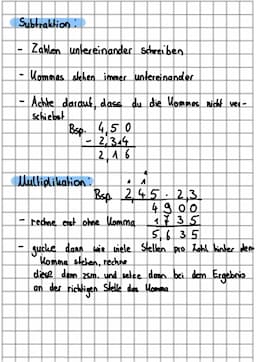 Subtraktion:
- Zahlen untereinander schreiben
- Kommas stehen immer untereinander
- Achte darauf, dass du die Kommas nicht ver-
schiebst
Bsp. 4,50
- 2,34
2,16
Multiplikation:
Bsp. 2,45 · 2,3
4900
- rechne erst ohne Komma 1735
5,635
- gucke dann wie viele Stellen pro Zahl hinter dem
Komma stehen, rechne
diese dann zsm. und setze dann bei dem Ergebnis
an der richtigen Stelle das Komma